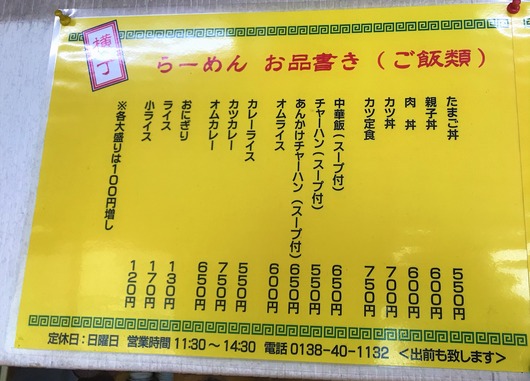 横丁
らーめん お品書き（ご飯類）
たまご丼 550円
親子丼 600円
肉丼 600円
カツ丼 700円
カツ定食 750円
中華飯（スープ付） 650円
チャーハン（スープ付） 550円
あんかけチャーハン（スープ付） 650円
オムライス 600円
カレーライス 550円
カツカレー 750円
オムカレー 650円
おにぎり 130円
ライス 170円
小ライス 120円
※各大盛りは100円増し
定休日：日曜日 営業時間 11:30～14:30 電話 0138-40-1132 ＜出前も致します＞